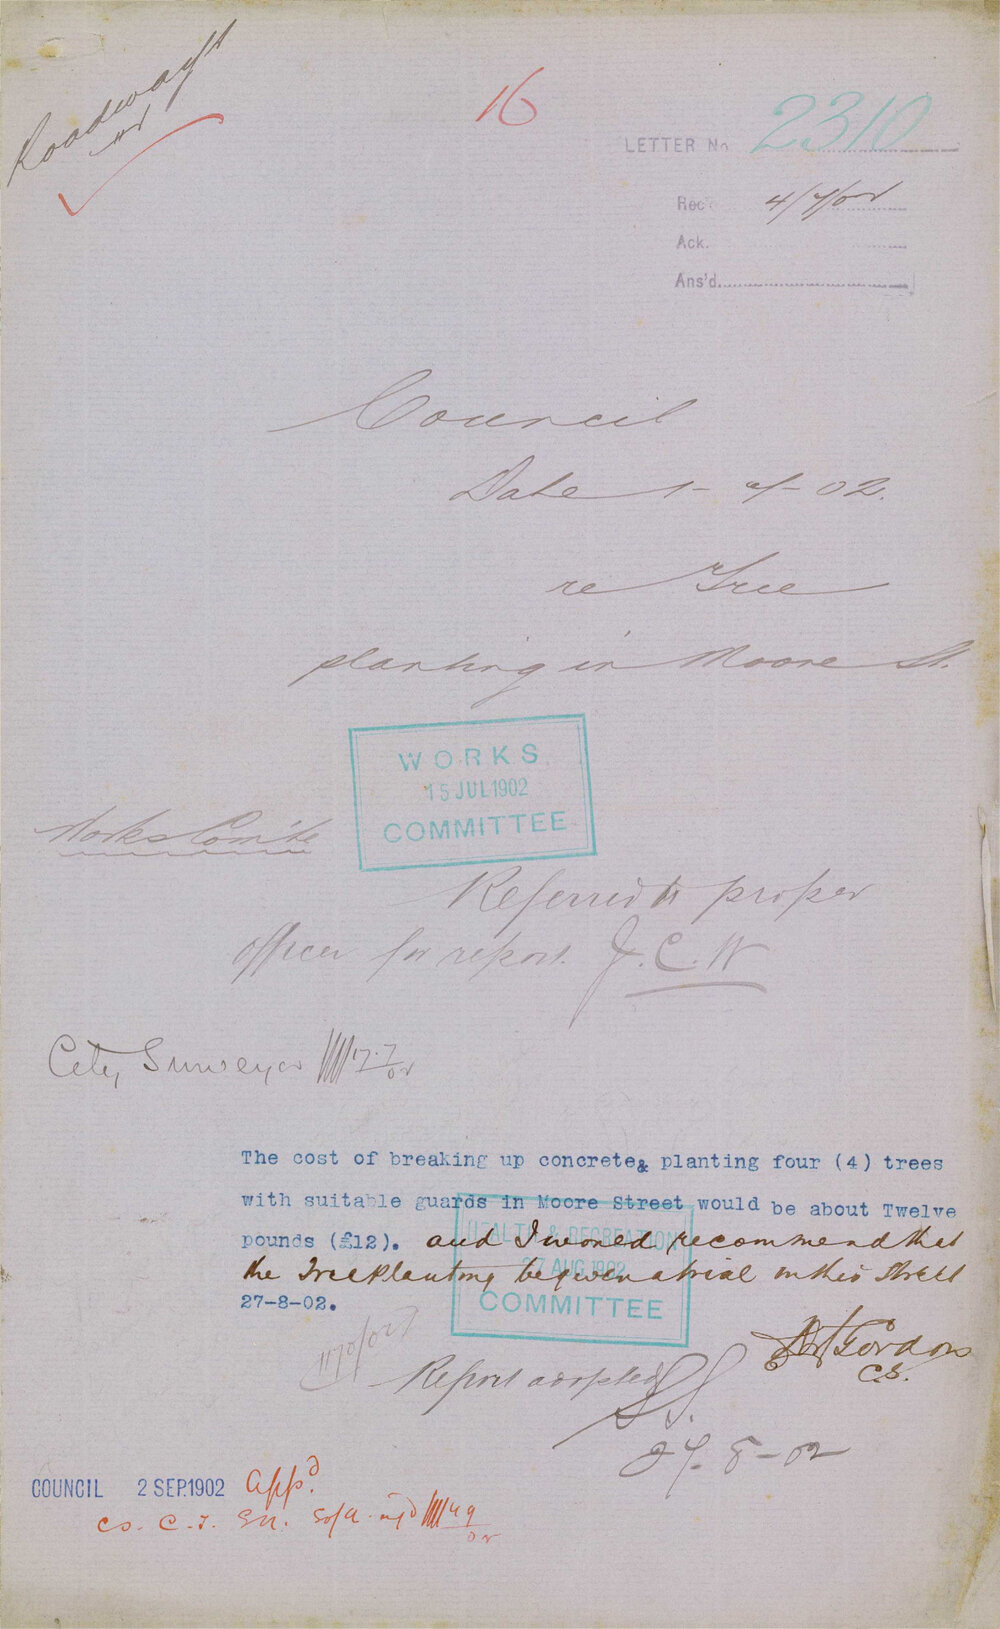 Roadways
02
16
LETTER No 2310
Rec'd 4/7/02
Ack.
Ans'd
Council
Date 1-7-02.
re Tree
planting in Moore St.
WORKS
15 JUL 1902
COMMITTEE
Works Com'tee
Referred to proper
officer for report. J.C.W
City Surveyor 17.7/02
The cost of breaking up concrete & planting four (4) trees
with suitable guards in Moore Street would be about Twelve
pounds (£12). and I would recommend that
the Tree Planting be given a trial in this Street
27-8-02.
HEALTH & RECREATION
27 AUG 1902
COMMITTEE
Gordon
C.S.
Report adopted
27-8-02
COUNCIL 2 SEP.1902 appd.
CS. C.T.